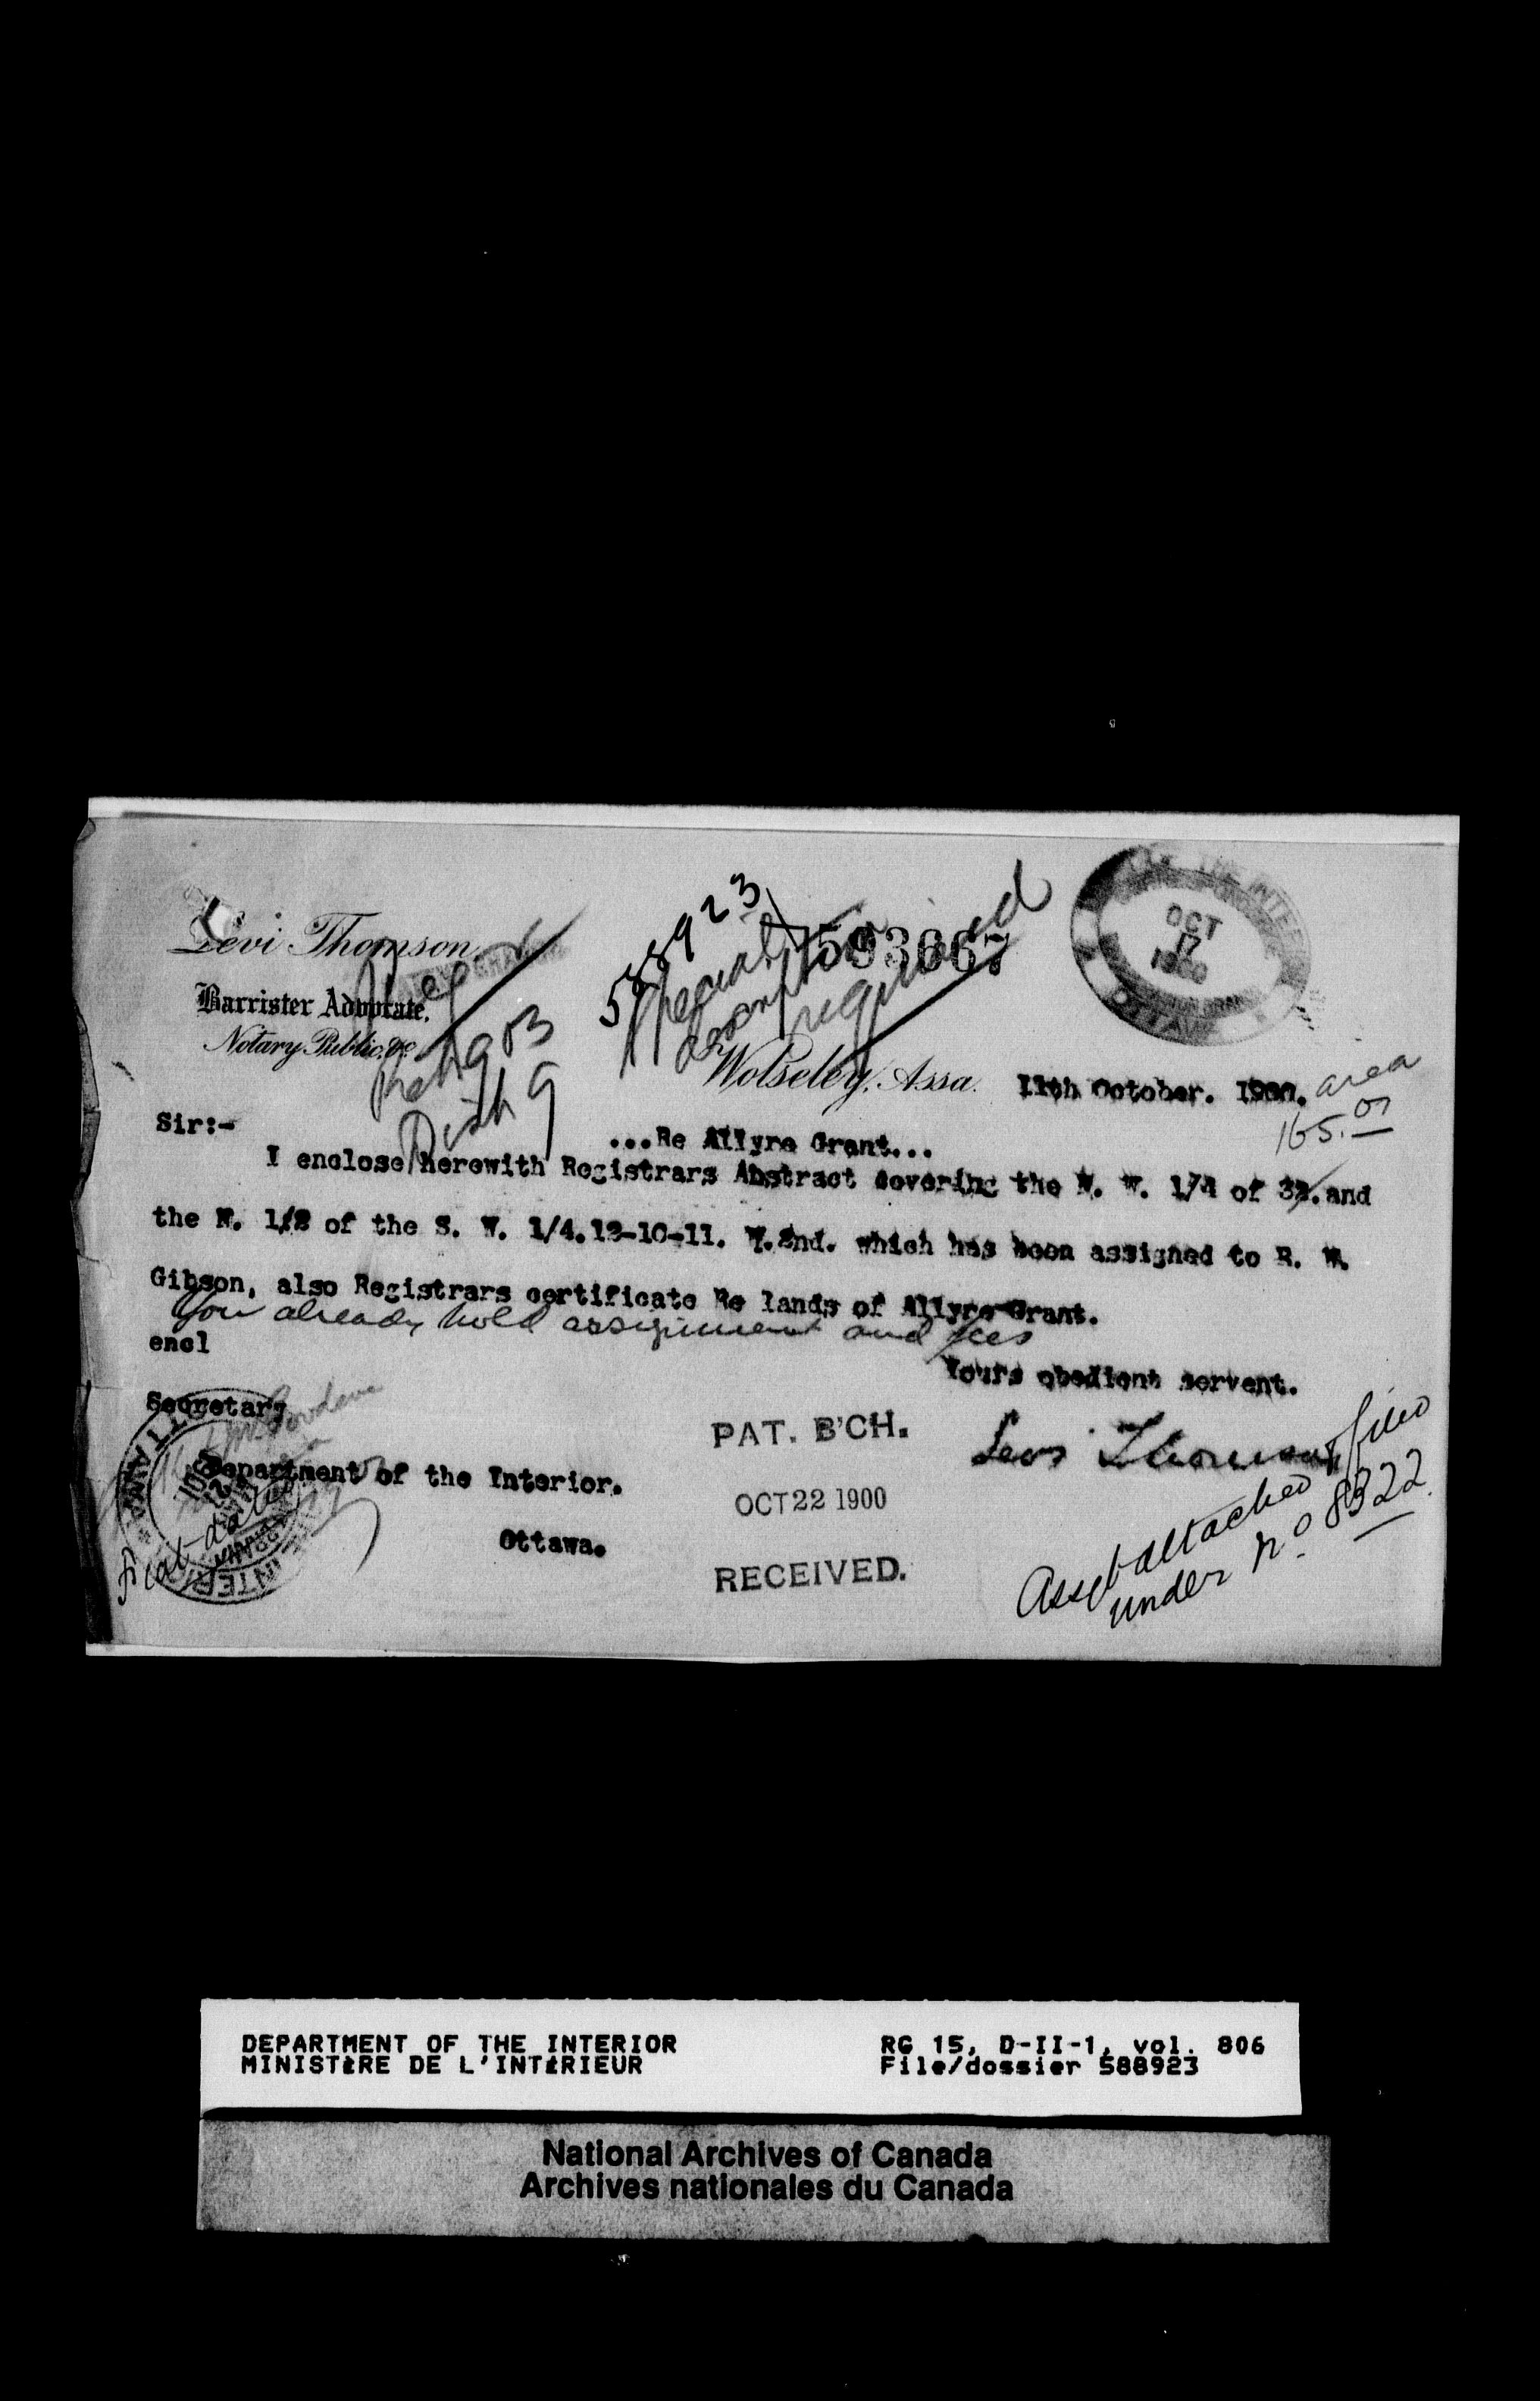 588923
593667
Special
description
required
Levi Thomson,
Barrister Advocate.
Notary Public, &c
OCT
17
1900
OTTAWA
Wolseley, Assa. 11th October. 1900.
area
165.01
Sir:-
...Re Allyre Grant...
I enclose herewith Registrars Abstract covering the N. W. 1/4 of and
the N. 1/2 of the S. W. 1/4.12-10-11. W.2nd. which has been assigned to R. W.
Gibson, also Registrars certificate Re lands of Allyre Grant.
You already hold assignment and fees
encl
Yours obedient servent.
Secretary
Levi Thomson
Department of the Interior.
Ottawa.
PAT. B'CH.
OCT 22 1900
RECEIVED.
Fiat
attached filed
under No. 8322.
DEPARTMENT OF THE INTERIOR RG 15, D-II-1, vol. 806
MINISTÈRE DE L'INTÉRIEUR File/dossier 588923
National Archives of Canada
Archives nationales du Canada